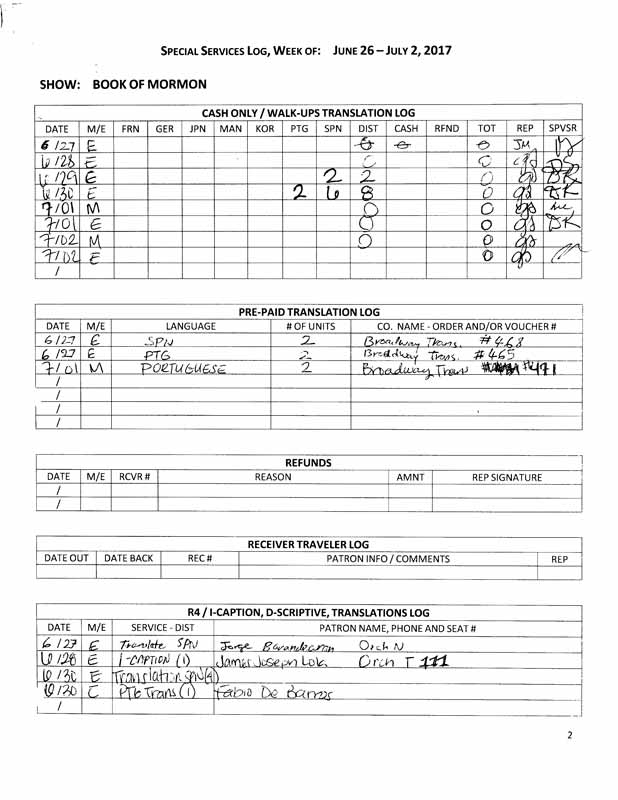 SPECIAL SERVICES LOG, WEEK OF: JUNE 26 – JULY 2, 2017
SHOW: BOOK OF MORMON
CASH ONLY / WALK-UPS TRANSLATION LOG
DATE M/E FRN GER JPN MAN KOR PTG SPN DIST CASH RFND TOT REP SPVSR
6/27 E 0 0 0 JM
6/28 E 0 0
6/29 E 2 2 0 DK
6/30 E 2 6 8 0 DK
7/01 M 0 0
7/01 E 0 0 DK
7/02 M 0 0
7/02 E 0
/
PRE-PAID TRANSLATION LOG
DATE M/E LANGUAGE # OF UNITS CO. NAME - ORDER AND/OR VOUCHER #
6/27 E SPN 2 Broadway Trans. #468
6/27 E PTG 2 Broadway Trans. #465
7/01 M PORTUGUESE 2 Broadway Trans #471
/
/
/
REFUNDS
DATE M/E RCVR # REASON AMNT REP SIGNATURE
/
/
RECEIVER TRAVELER LOG
DATE OUT DATE BACK REC # PATRON INFO / COMMENTS REP
R4 / I-CAPTION, D-SCRIPTIVE, TRANSLATIONS LOG
DATE M/E SERVICE - DIST PATRON NAME, PHONE AND SEAT #
6/27 E Translate SPN Jorge Orch N
6/28 E I-CAPTION (1) James Joseph Orch T 111
6/30 E Translation SPN(4)
6/30 E PTG Trans (1) Fabio De Barros
/
2